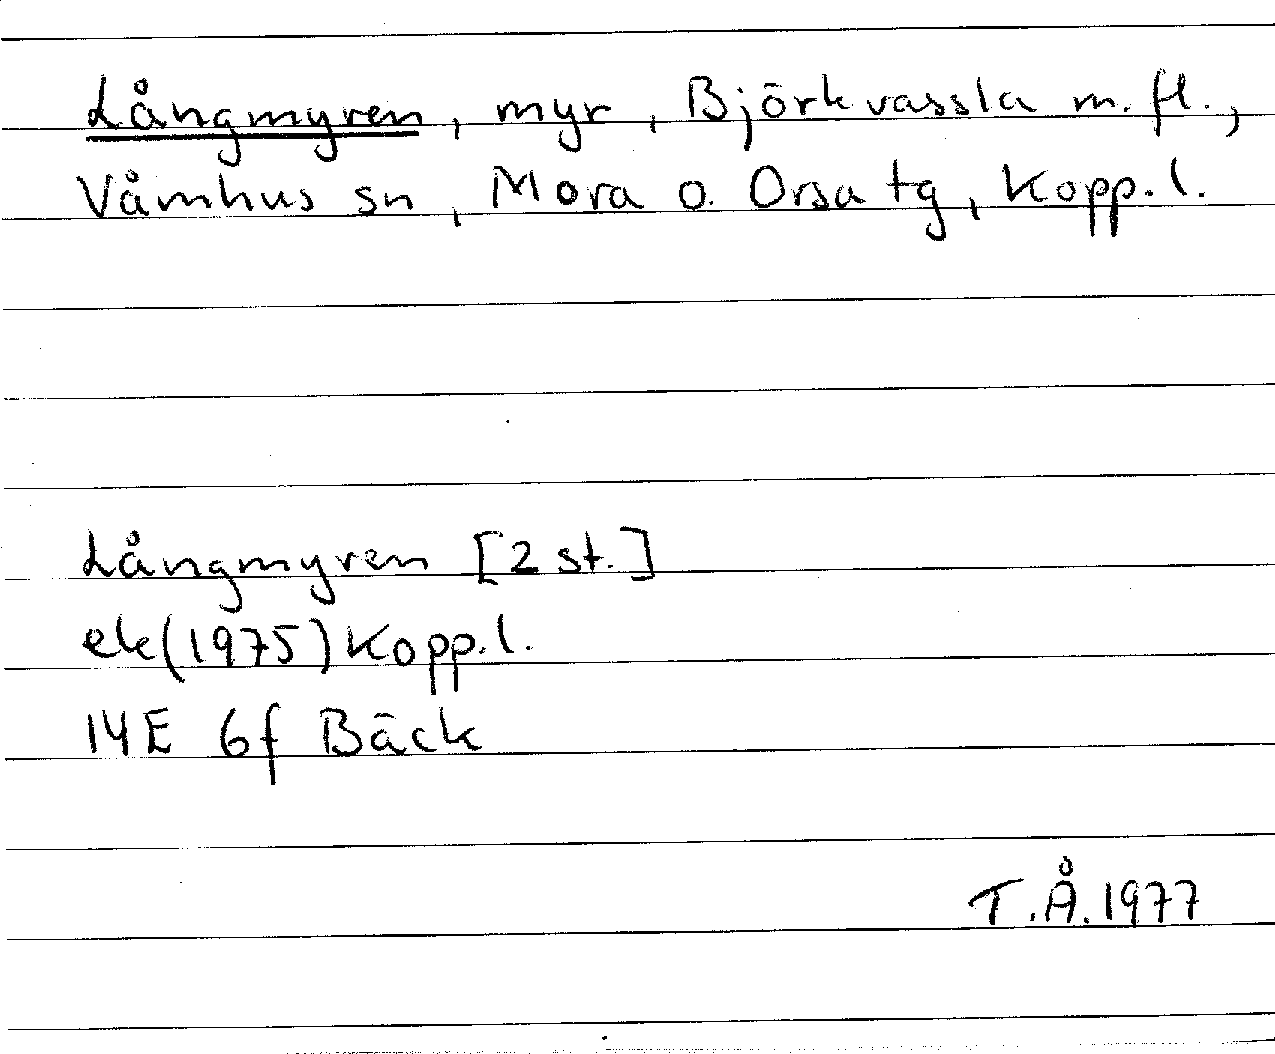 Långmyren, myr, Björkvassla m.fl.,
Våmhus sn, Mora o. Orsa tg, Kopp.l.
Långmyren [2 st.]
ek(1975)Kopp.l.
14E 6f Bäck
T.Å.1977